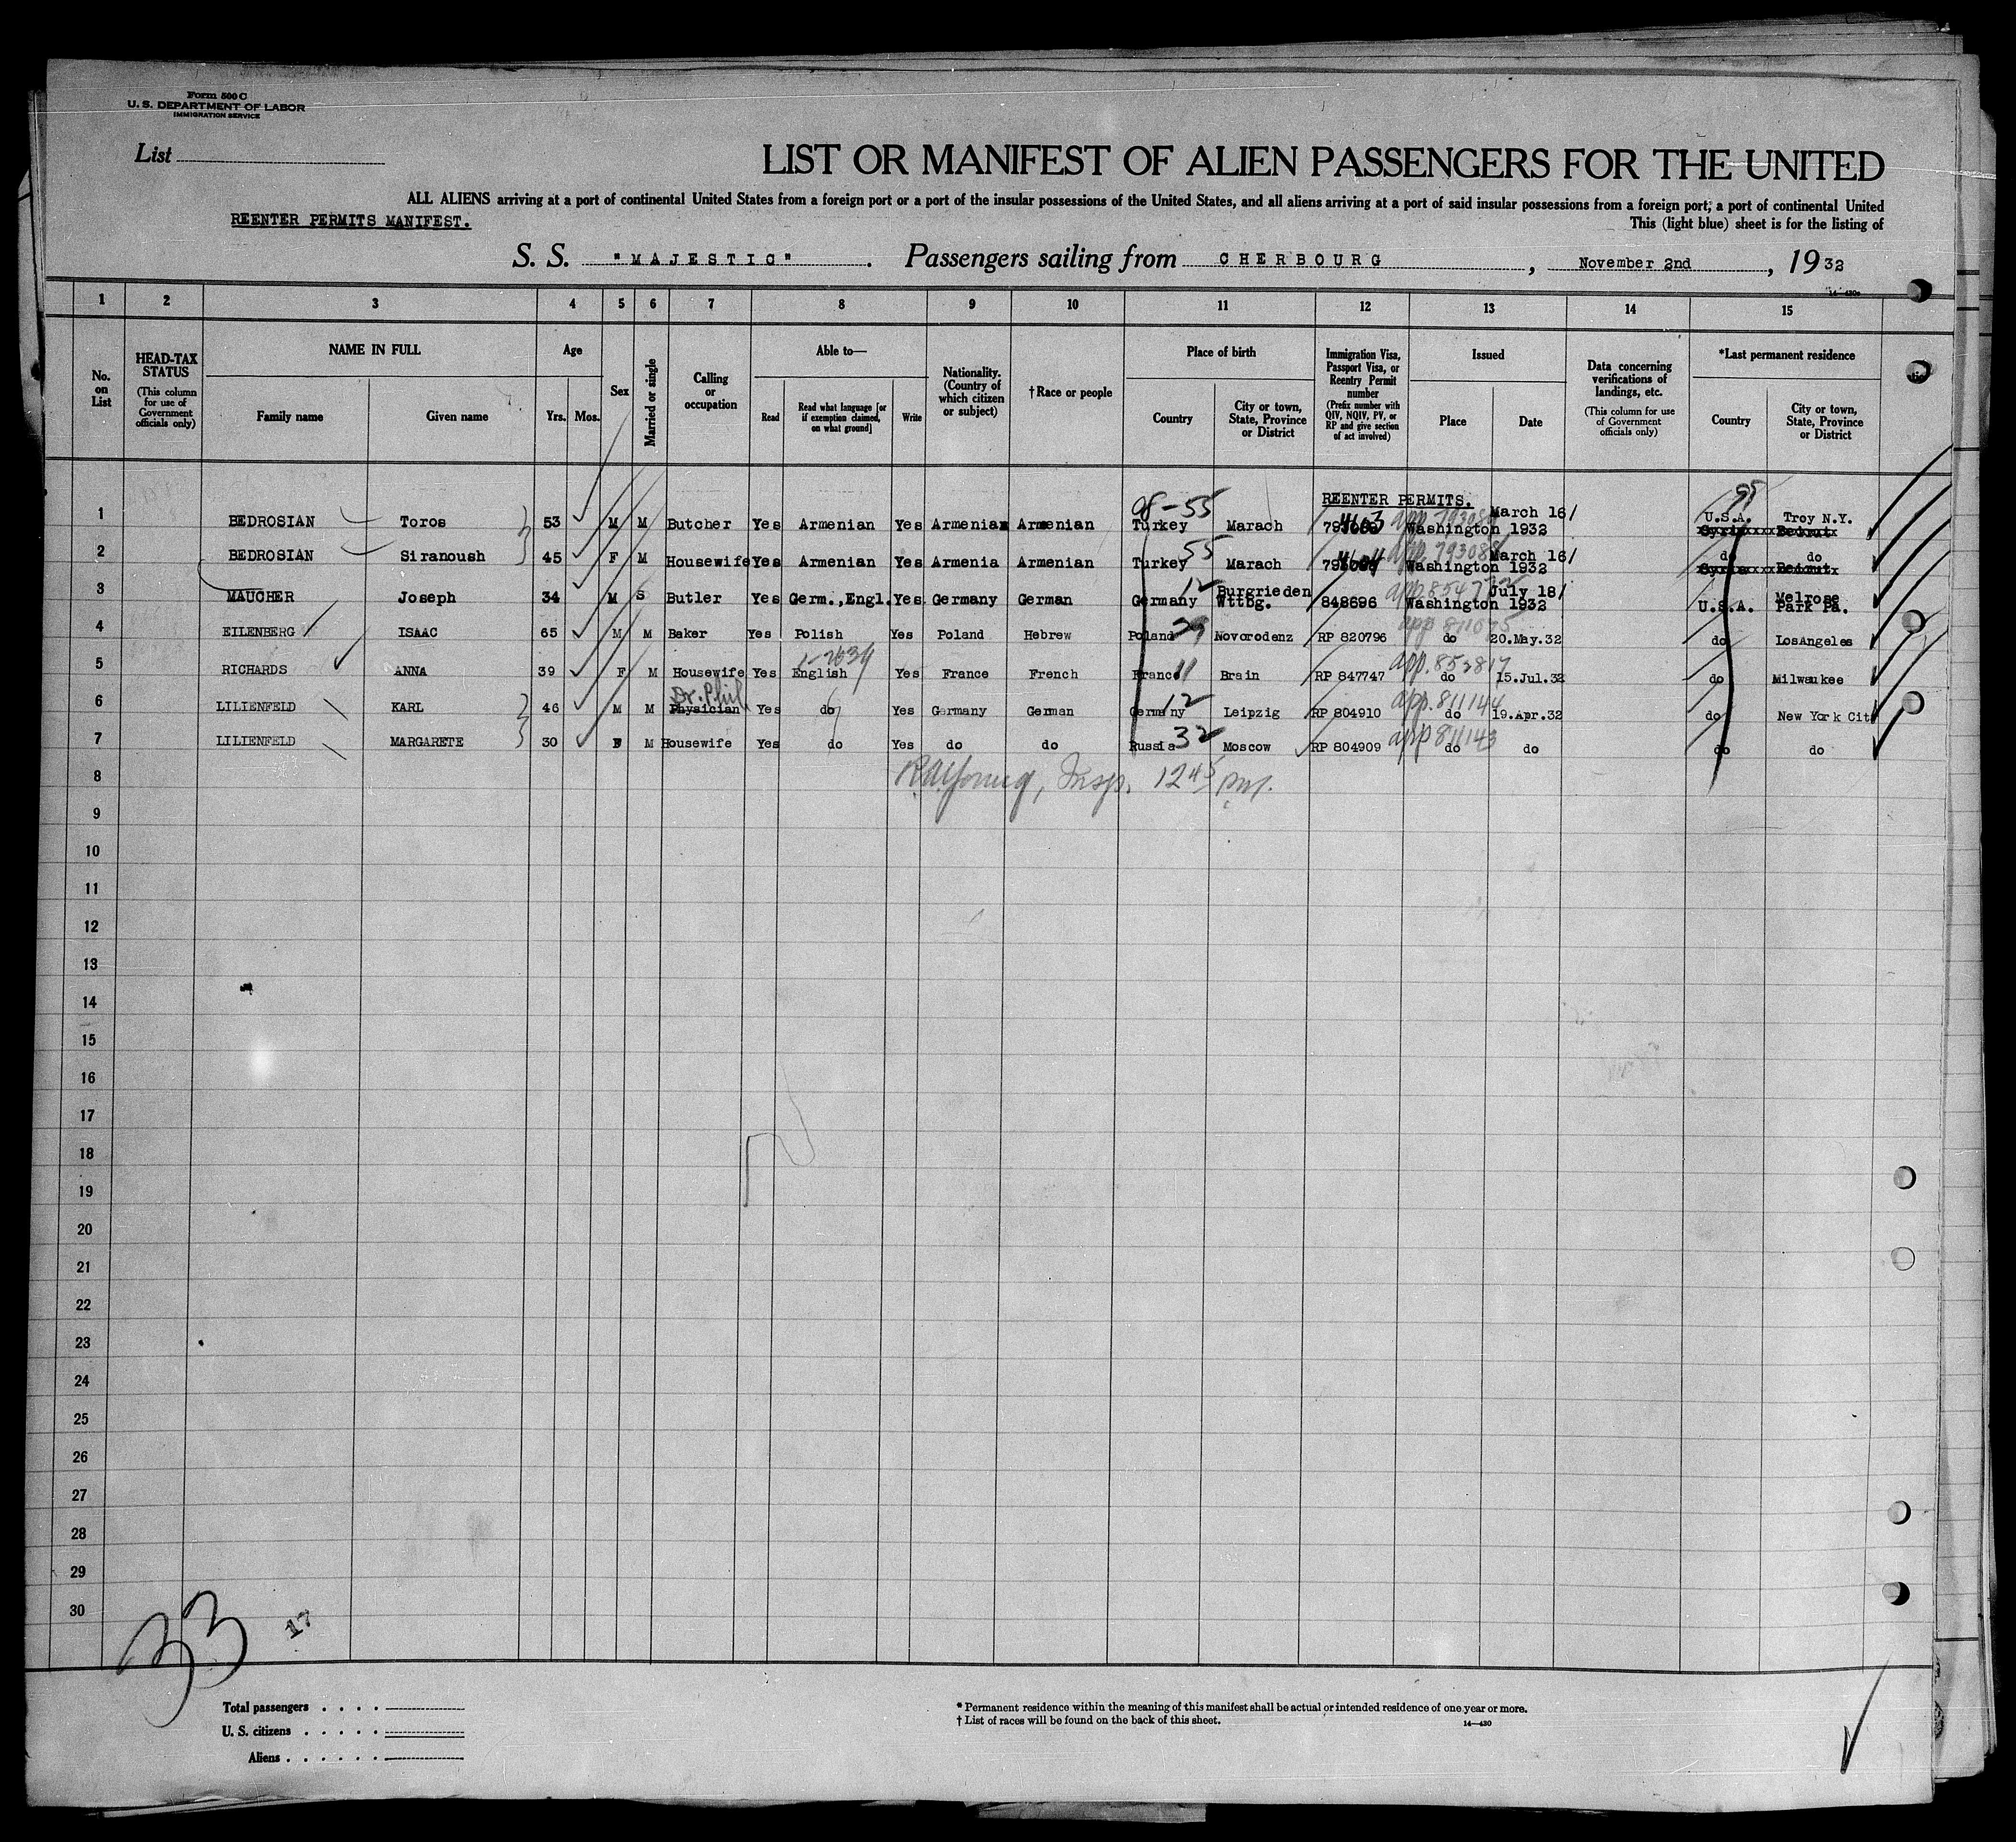 Form 500 C
U. S. DEPARTMENT OF LABOR
IMMIGRATION SERVICE
List
LIST OR MANIFEST OF ALIEN PASSENGERS FOR THE UNITED
ALL ALIENS arriving at a port of continental United States from a foreign port or a port of the insular possessions of the United States, and all aliens arriving at a port of said insular possessions from a foreign port, a port of continental United
REENTER PERMITS MANIFEST.
This (light blue) sheet is for the listing of
S. S. "MAJESTIC". Passengers sailing from CHERBOURG, November 2nd, 1932
1 2 3 4 5 6 7 8 9 10 11 12 13 14 15
No. on List
HEAD-TAX STATUS (This column for use of Government officials only)
NAME IN FULL Family name Given name
Age Yrs. Mos.
Sex
Married or single
Calling or occupation
Able to— Read Read what language [or if exemption claimed, on what ground] Write
Nationality. (Country of which citizen or subject)
†Race or people
Place of birth Country City or town, State, Province or District
Immigration Visa, Passport Visa, or Reentry Permit number (Prefix number with QIV, NQIV, PV, or RP and give section of act involved)
Issued Place Date
Data concerning verifications of landings, etc. (This column for use of Government officials only)
*Last permanent residence Country City or town, State, Province or District
REENTER PERMITS.
1 BEDROSIAN Toros 53 M M Butcher Yes Armenian Yes Armenian Armenian Turkey 55 Marach Washington March 16/ 1932 U.S.A. Troy N.Y.
Syria Beirut
2 BEDROSIAN Siranoush 45 F M Housewife Yes Armenian Yes Armenia Armenian Turkey 55 Marach Washington March 16/ 1932 do do
Syria Beirut
3 MAUCHER Joseph 34 M S Butler Yes Germ.,Engl. Yes Germany German Germany 12 Burgrieden Wttbg. 848696 Washington July 18/ 1932 U.S.A. Melrose Park Pa.
4 EILENBERG ISAAC 65 M M Baker Yes Polish Yes Poland Hebrew Poland 29 Novorodenz RP 820796 app 811075 do 20.May.32 do LosAngeles
5 RICHARDS ANNA 39 F M Housewife Yes English Yes France French France 11 Brain RP 847747 app. 853817 do 15.Jul.32 do Milwaukee
Dr. Phil
6 LILIENFELD KARL 46 M M Physician Yes do Yes Germany German Germany 12 Leipzig RP 804910 app. 811144 do 19.Apr.32 do New York City
7 LILIENFELD MARGARETE 30 F M Housewife Yes do Yes do do Russia 32 Moscow RP 804909 app 811143 do do do do
8 Young, Insp. 12 45 pm.
9
10
11
12
13
14
15
16
17
18
19
20
21
22
23
24
25
26
27
28
29
30
33 17
Total passengers
U. S. citizens
Aliens
* Permanent residence within the meaning of this manifest shall be actual or intended residence of one year or more.
† List of races will be found on the back of this sheet.
14—430